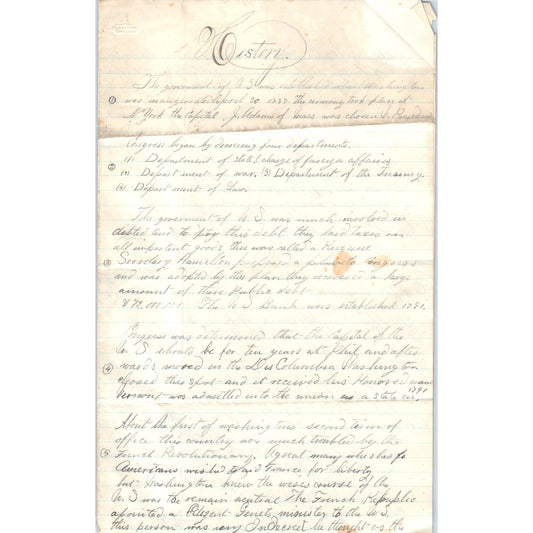 History.
The goverment of U.S. was established when Washington
① was inaugurated April 30 1789 the cermony took place at
N. York the Capital. J. Adams of Mass was chosen V. President
Congress began by creating four departments.
② (1) Department of state (charge of foreign affairs)
(2) Department of war. (3) Department of the Treasury.
(4) Department of Law.
The goverment of U S. was much involved in
debted, and to pay this debt they laid taxes on
all important goods this was called a Revenue
③ Secretary Hamelton proposed a plan to congress
and was adopted by this plan they a large
amount of these Public debt
$ 72,000.000. The U S Bank was established 1791.
Congress was determined that the Capital of the
U. S should be for ten years at Phil. and after
④ wards moved in the Dis Columbia Washington
this spot and it received his Honored name
Vermont was admitted into the union as a state in 1791
About the first of washingtons second term of
office this country was much troubled by the
⑤ French Revolutionary. A great many who had
Americans wished to aid France for liberty
but Washington knew the wises course of the
U. S was the remain neutral The French Republic
apointed a Genets minister to the U.S.
this person was very Indecreet he thought as the